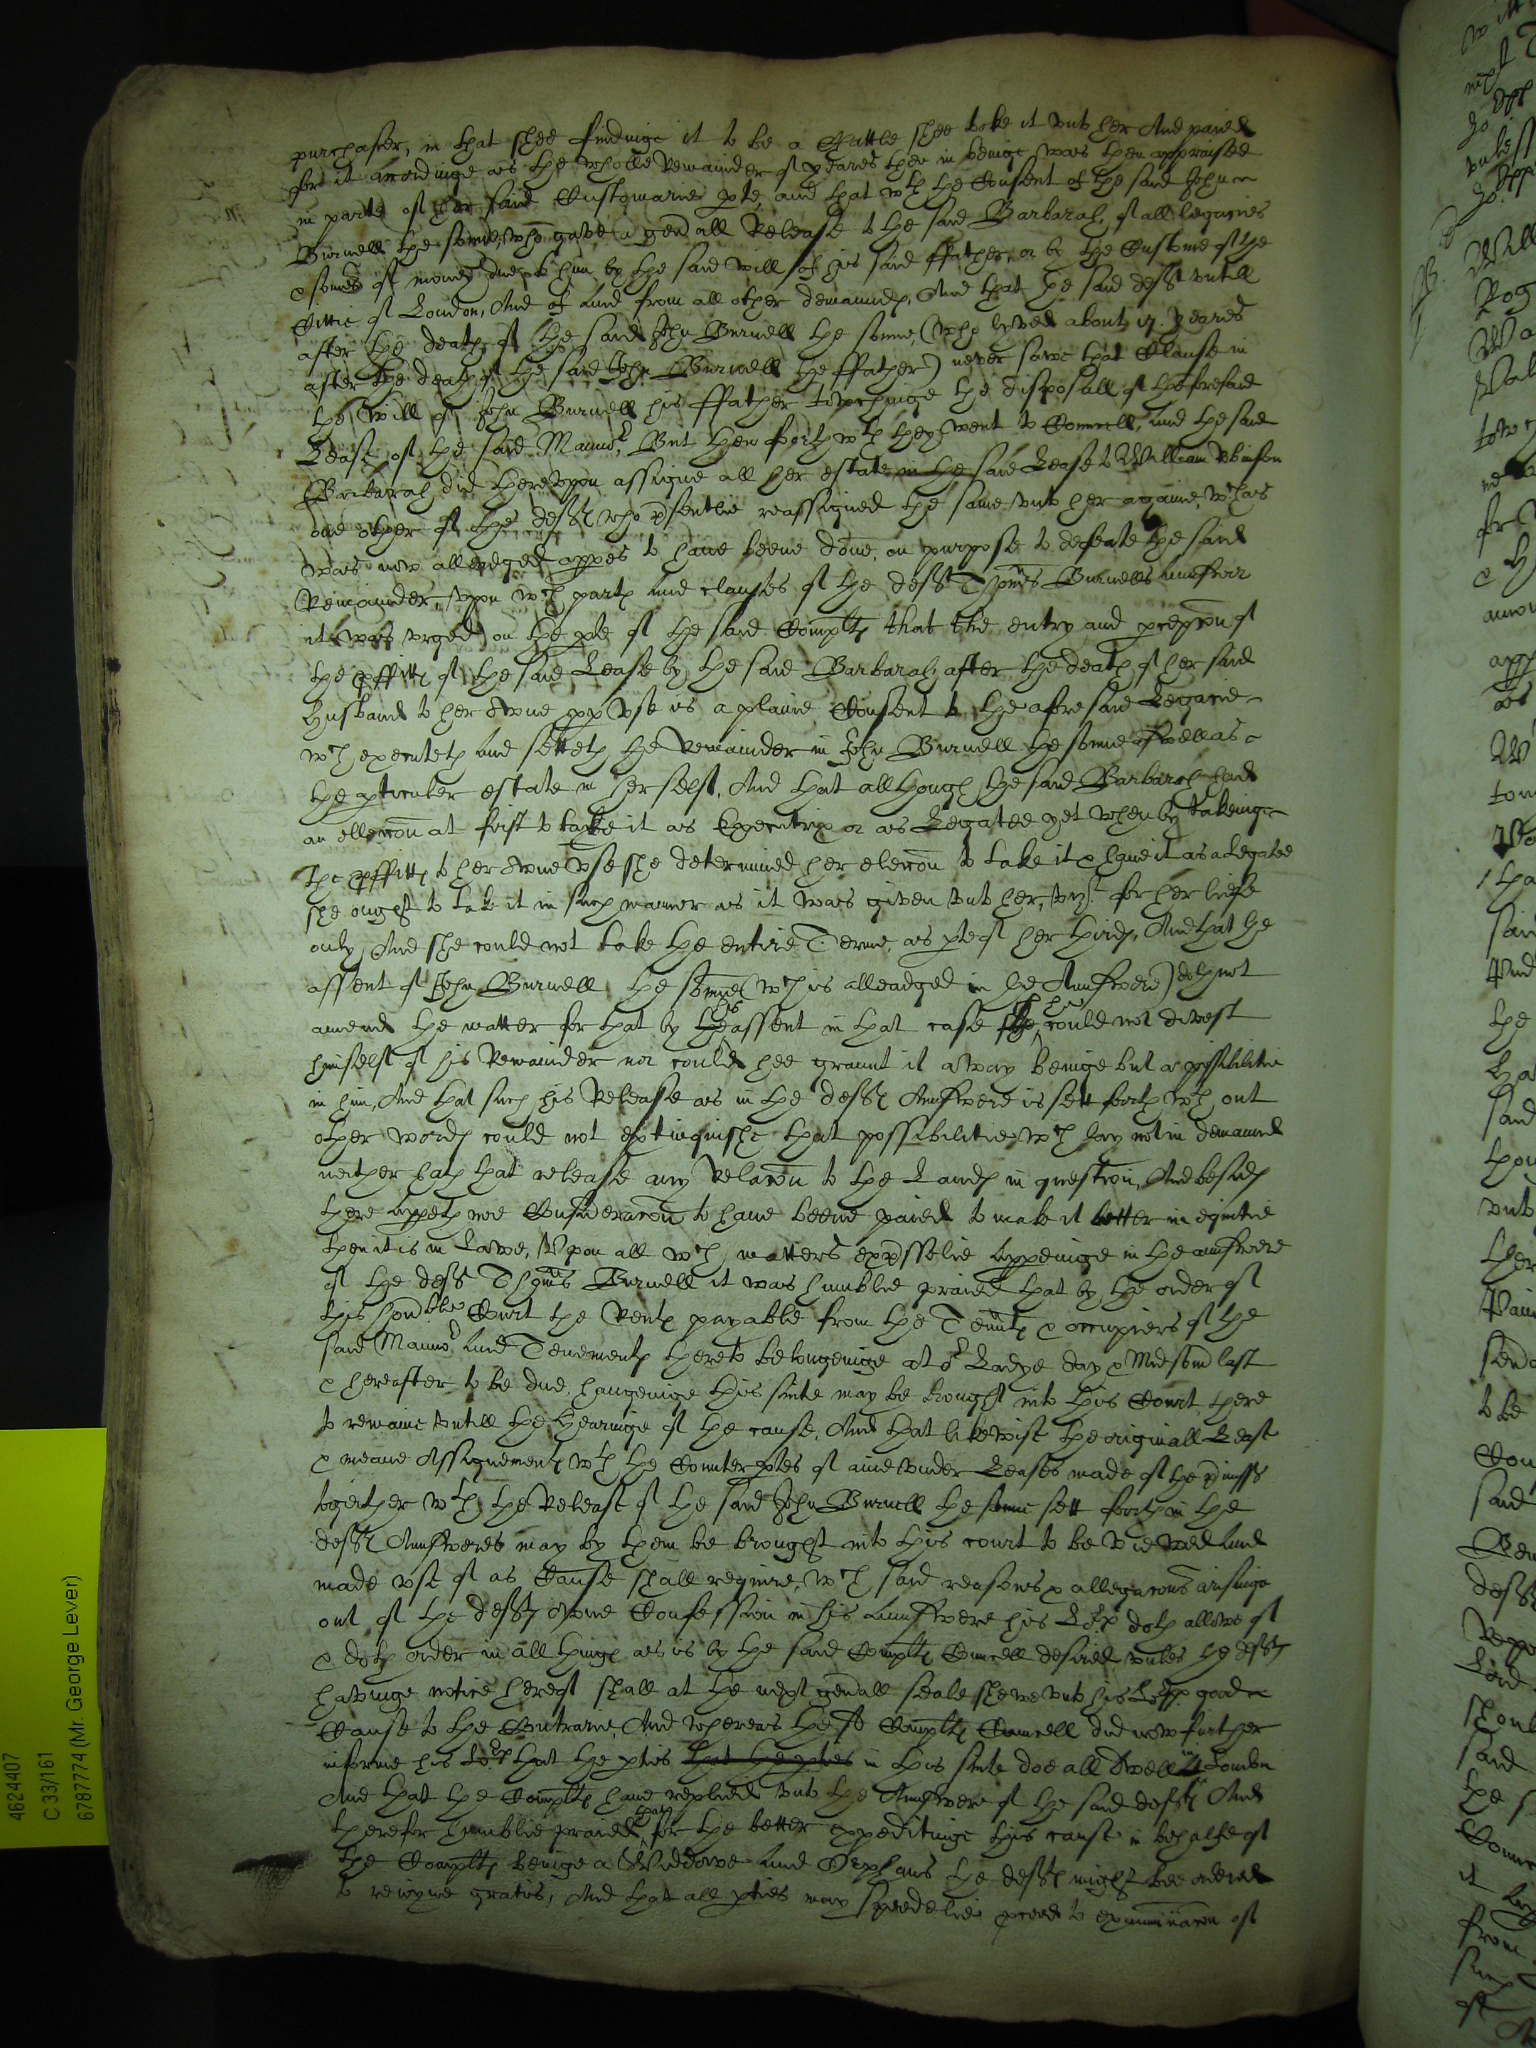 purchaser, in that shee findinge it to be a Cattle shee toke it unto her And paied
for it accordinge as the whole Remainder of yeares then in beinge was then appraised
in parte of her said Customarie pte, and that wth the Consent of the said John
Burnell the sonne, who gave a gen'all Release to the said Barbarah, of all legacies
& somes of money due to him by the said will of his said ffather, or by the Custome of the
Cittie of London, And of and from all other demaundes, And that the said defft untill
after the death of the said John Burnell the sonne, (who lyved about 17 yeares
after the death of the said John Burnell the ffather) never sawe that Clause in
the Will of John Burnell his ffather towchinge the disposall of the foresaid
Lease of the said Mannor, But then forthwth they went to Councell, and the said
Barbarah did thereupon assigne all her estate in the said Lease to William Robinson
one other of the defftes who p'sentlie reassigned the same unto her againe, wch as
was now alleadged appes to have beene done on purpose to defeate the said
Remainder, Upon wch partes and clauses of the defft Thomas Burnells aunswer
it was urged on the pte of the said Compltes that the entry and pcepcon of
the pffittes of the said Lease by the said Barbarah after the death of her said
husband to her owne pp use is a plaine Consent to the aforesaid Legacie
wch executeth and setteth the Remainder in John Burnell the sonne aswell as
the pticuler estate in her selfe, And that allthough the said Barbarah had
an elleccon at first to take it as Executrix or as Legatee yet when by takeinge
the pffittes to her owne Use she determined her eleccon to take it & have it as a Legatee
she ought to take it in such manner as it was given unto her, vizt. for her liefe
only, And she could not take the entire Terme, as pte of her thirdes, And that the
assent of John Burnell the sonne (wch is alleadged in the Aunswere) doth not
amend the matter for that by this assent in that case hee could not divest
himselfe of his Remainder nor could hee graunt it away beinge but a possibilitie
in him, And that such his Release as in the defftes Aunswere is sett forth wthout
other wordes could not extinguishe that possibilitie wch lay not in demaund
neither hath that release any Relacon to the Landes in question, And besides
there appeth noe Consideracon to have beene paied to make it better in equitie
then it is in Lawe, Upon all wch matters exp'sselie appeinge in the aunswere
of the defft Thomas Burnell it was humblie praied that by the order of
this hon'ble Court the Rentes payable from the Ten'ntes & occupiers of the
said Mannor and Tenementes thereto belongeinge at or Ladye day & Midsom' last
& hereafter to be due, hangeinge this suite may be brought into this Court, there
to remaine untill the Hearinge of the cause, And that likewise the originall Lease
& meane Assignementes wth the Counterptes of anie under Leases made of the p'misses
together wth the Release of the said John Burnell the sonne sett forth in the
defftes Aunsweres may by them be brought into this court to be viewed and
made use of as Cause shall require, wch said reasons & allegacons arisinge
out of the defftes owne Confession in his Aunswere his Lopp doth allowe of
& doth order in all thinges as is by the said Compltes Councell desired unles the defftes
havinge notice hereof shall at the next gen'all seale shewe unto his Lopp good
Cause to the Contrarie, And whereas the sd Compltes Councell did now further
informe his Lopp that the pties that the pties in this suite doe all dwell in London
And that the Compltes have replied unto the Aunswere of the said defftes And
therefor humblie praied that for the better expeditinge this cause in behalfe of
the Compltes beinge a Widdowe and Orphans the defftes might bee ordered
to reioyne gratis, And that all pties may speedelie pceed to examinacon of
4624407
C 33/161
67877774 (Mr. George Lever)